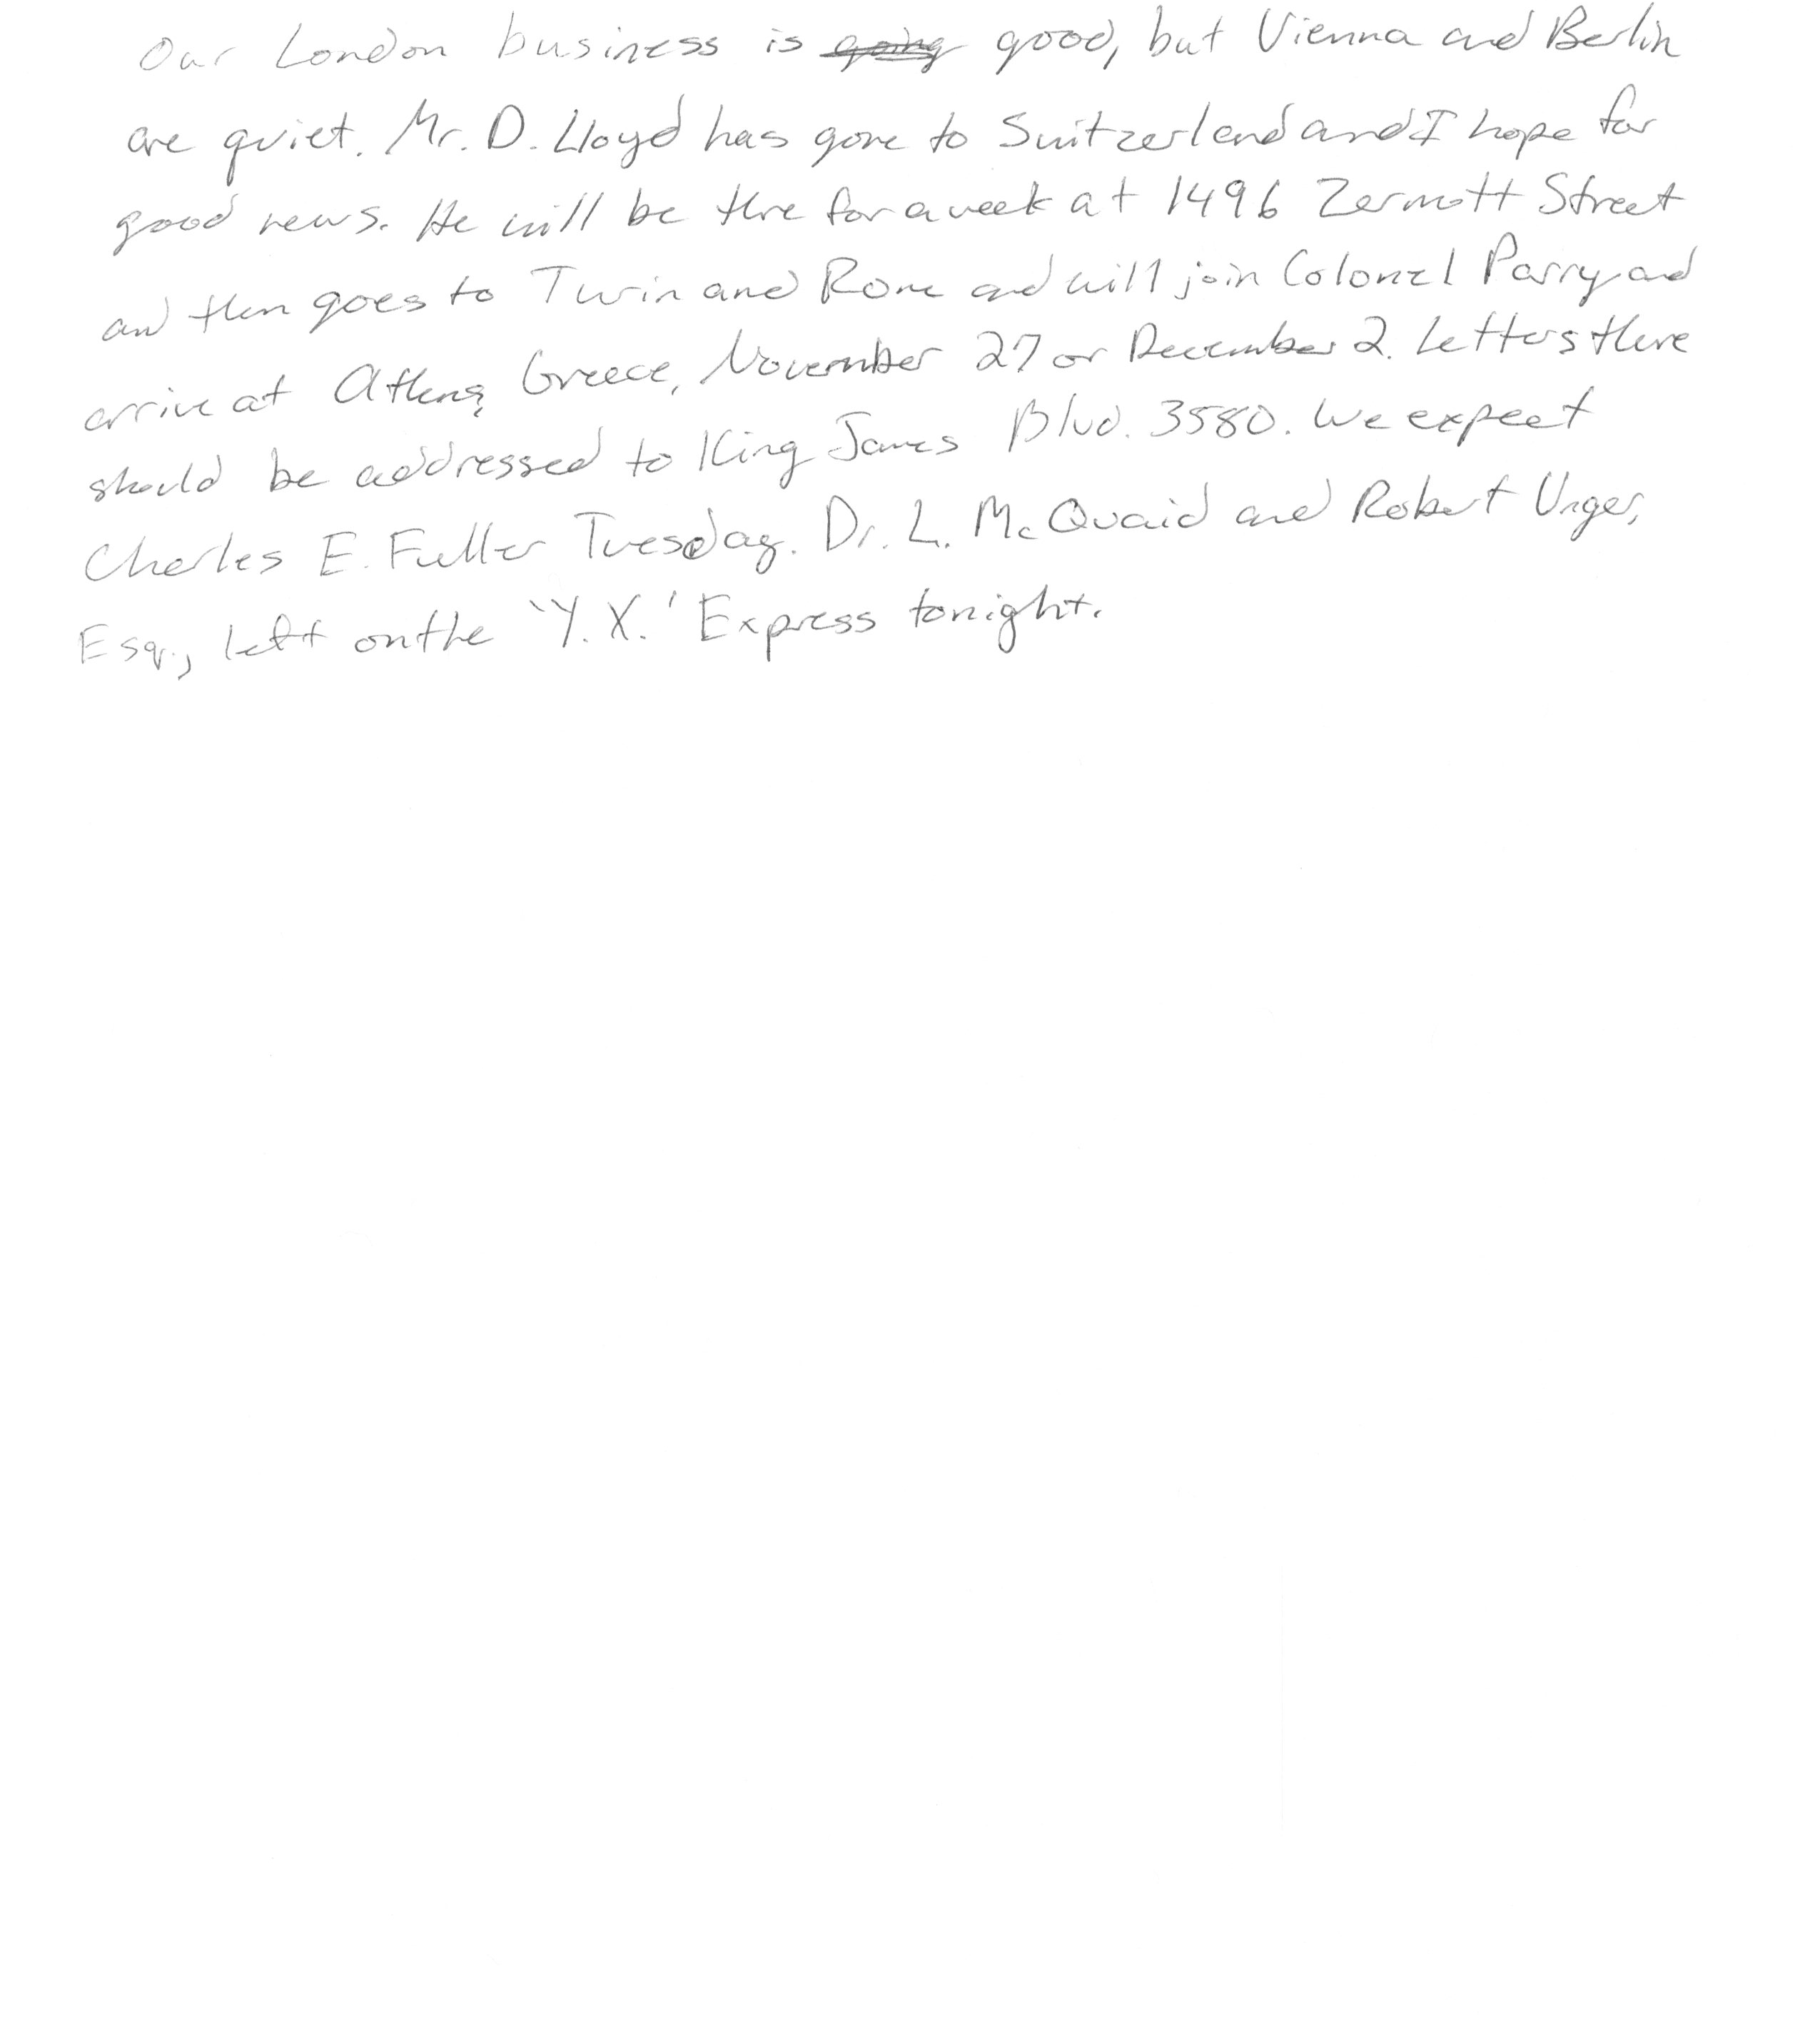 Our London business is going good, but Vienna and Berlin
are quiet. Mr. D. Lloyd has gone to Switzerland and I hope for
good news. He will be there for a week at 1496 Zermott Street
and then goes to Turin and Rome and will join Colonel Parry and
arrive at Athens, Greece, November 27 or December 2. Letters there
should be addressed to King James Blvd. 3580. We expect
Charles E. Fuller Tuesday. Dr. L. McQuaid and Robert Unger,
Esq., left on the 'Y.X.' Express tonight.